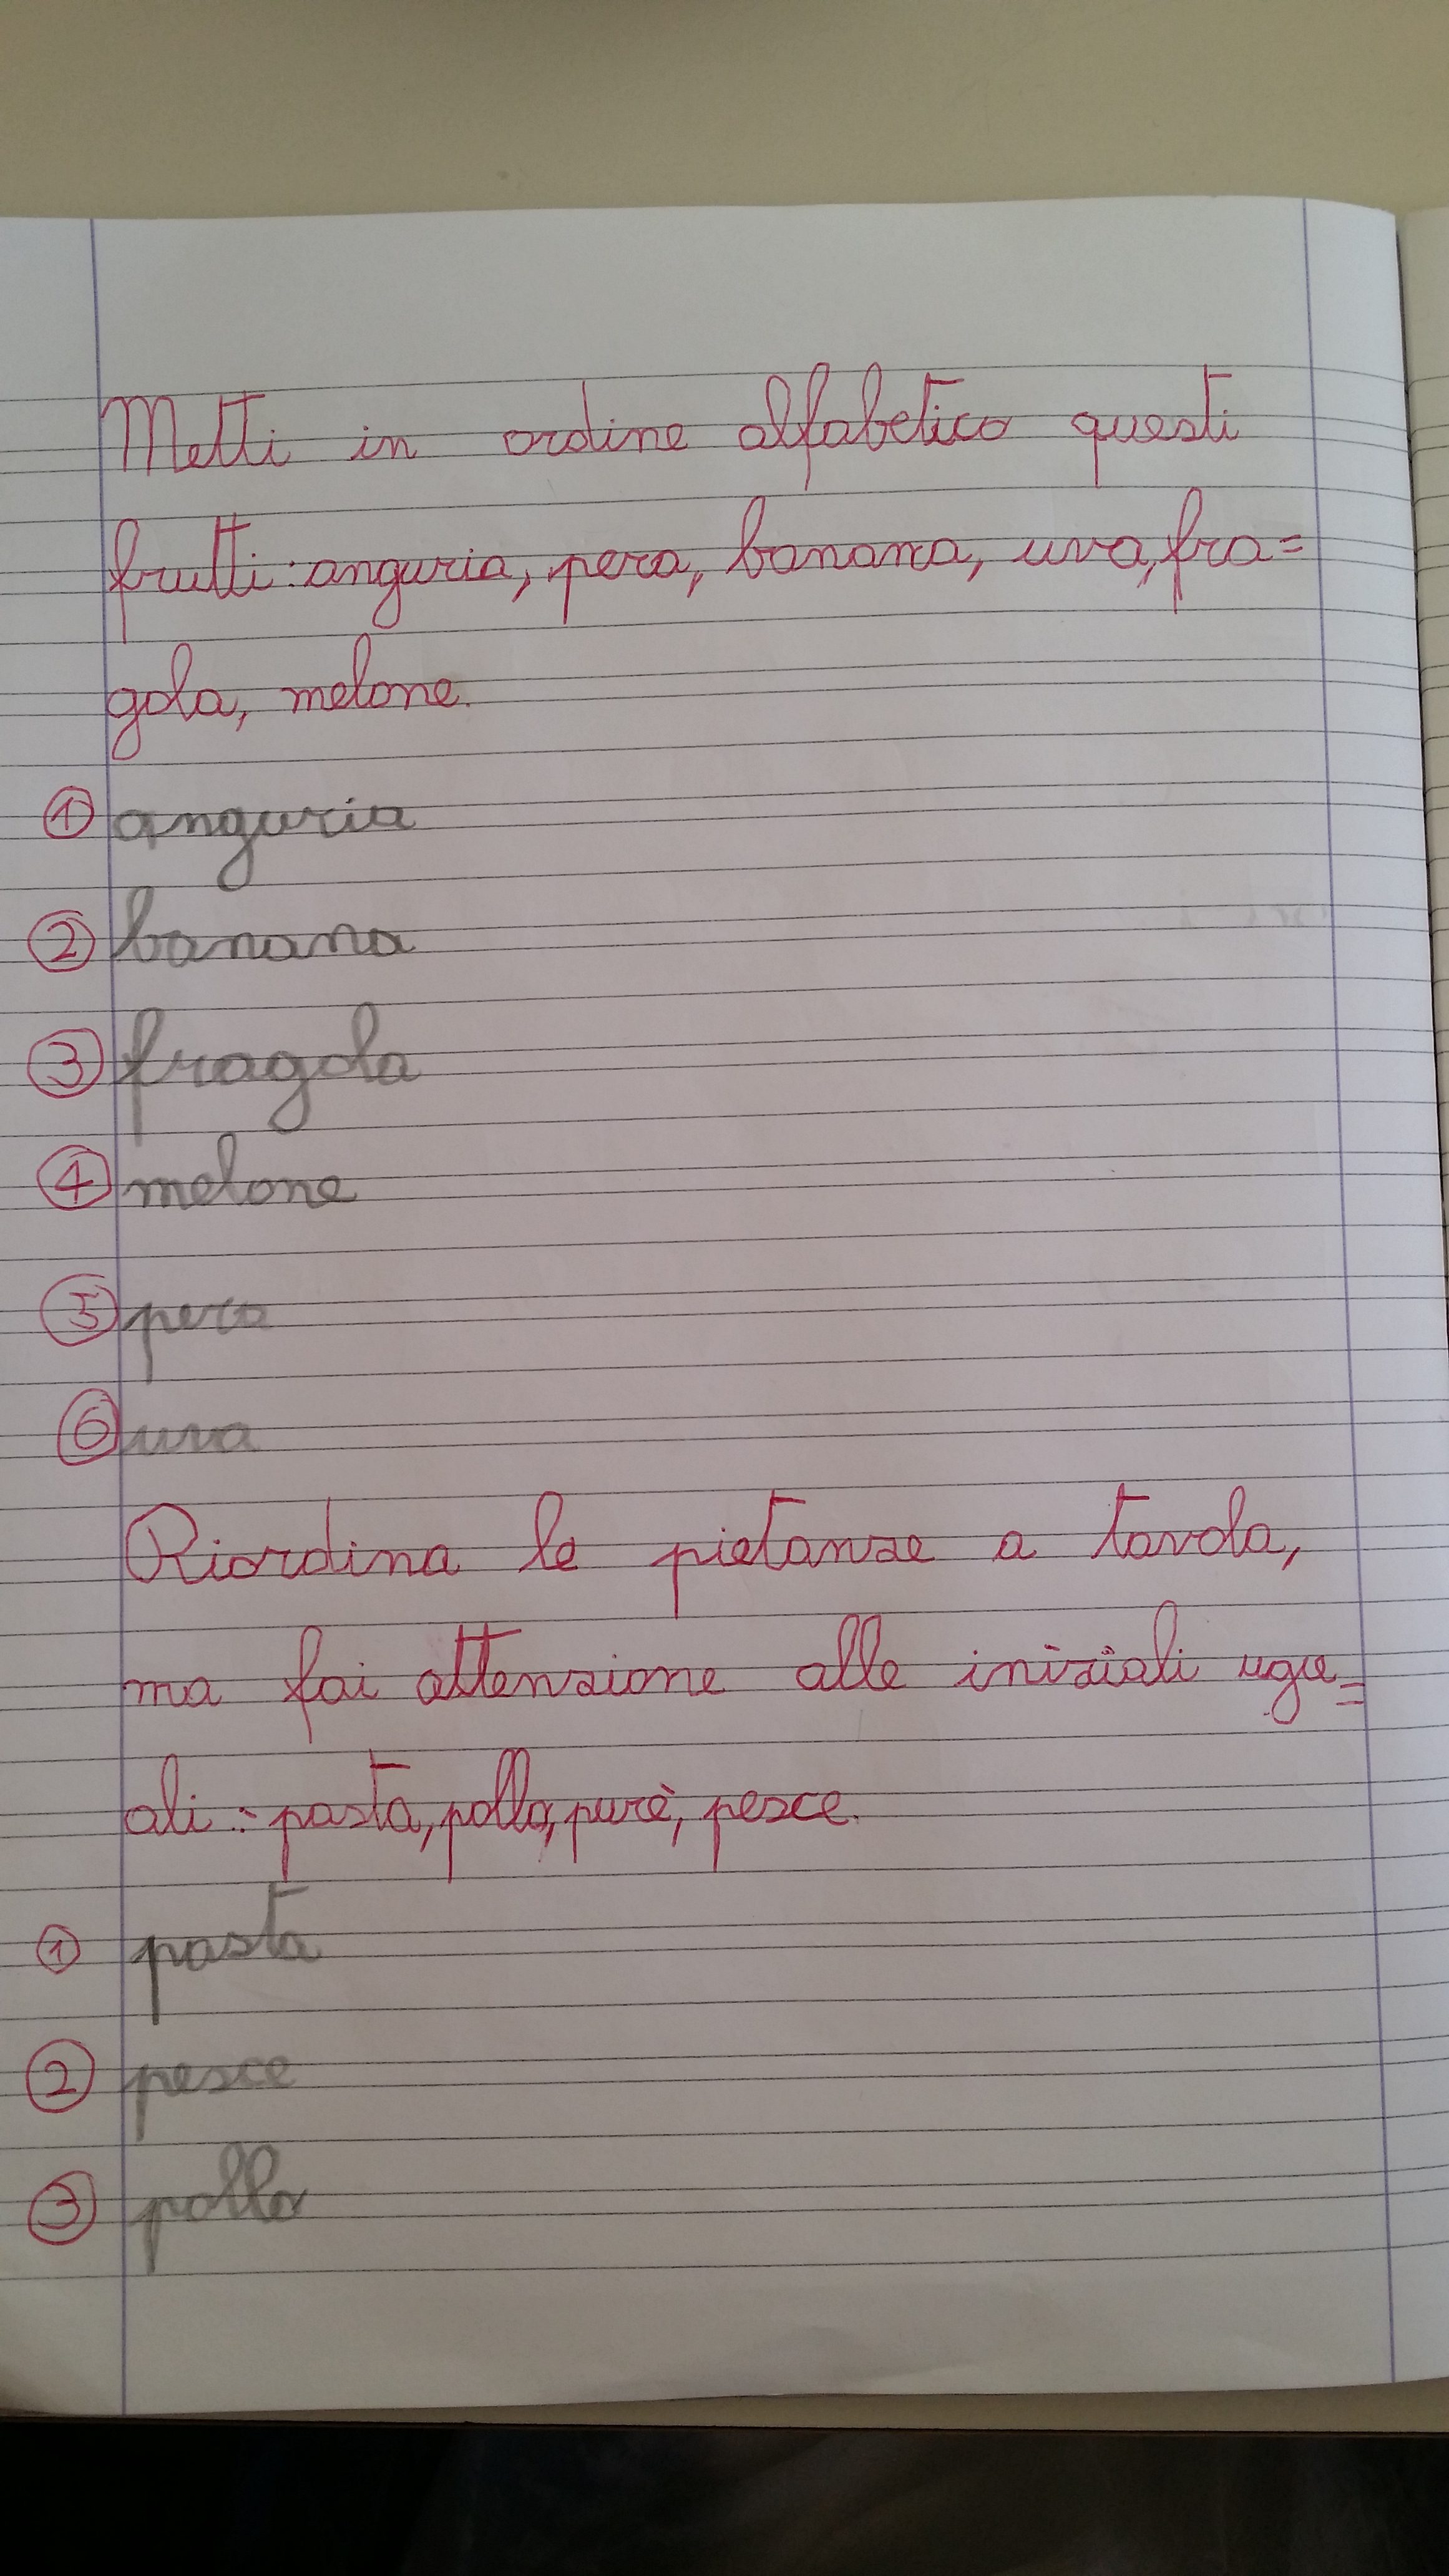 Metti in ordine alfabetico questi
frutti: anguria, pera, banana, uva, fra=
gola, melone.
① anguria
② banana
③ fragola
④ melone
⑤ pera
⑥ uva
Riordina le pietanze a tavola,
ma fai attenzione alle iniziali ugu=
ali: pasta, pollo, purè, pesce.
① pasta
② pesce
③ pollo